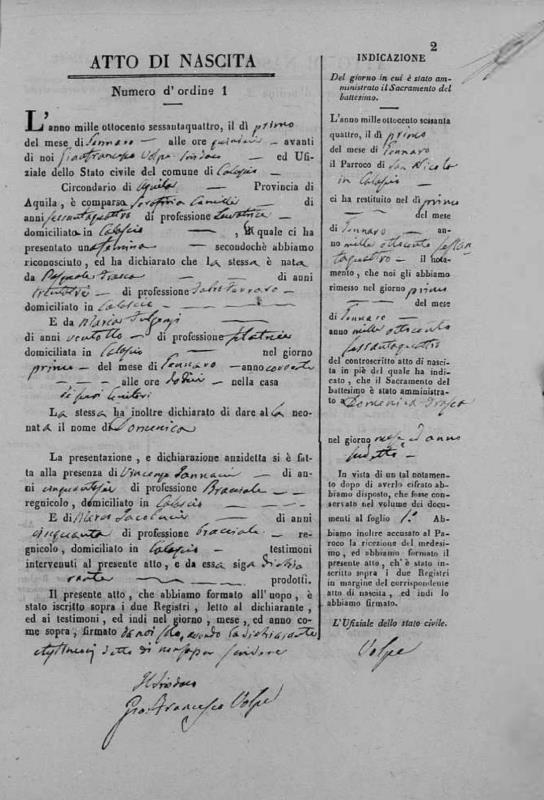 2
ATTO DI NASCITA
Numero d'ordine 1
L'anno mille ottocento sessantaquattro, il dì primo
del mese di Gennaro — alle ore quindici — avanti
di noi Gianfrancesco Volpe Sindaco — ed Ufi-
ziale dello Stato civile del comune di Calascio —
Circondario di Aquila — Provincia di
Aquila, è comparsa Serafina Camilli — di
anni sessantaquattro di professione Levatrice —
domiciliata in Calascio — — , la quale ci ha
presentato una femina — secondochè abbiamo
riconosciuto, ed ha dichiarato che la stessa è nata
da Pasquale Frasca — di anni
trentatre — di professione Fabbro Ferraro —
domiciliato in Calascio —
E da Maria Fulgenzi —
di anni ventotto — di professione filatrice
domiciliata in Calascio — nel giorno
primo — del mese di Gennaro — anno corrente
— — — alle ore dodici — nella casa
di suoi genitori
La stessa ha inoltre dichiarato di dare alla neo-
nata il nome di Domenica
La presentazione, e dichiarazione anzidetta si è fat-
ta alla presenza di Vincenzo — di an-
ni cinquantasei di professione Bracciale — —
regnicolo, domiciliato in Calascio — —
E di Marco — di anni
cinquanta di professione bracciale — re-
gnicolo, domiciliato in Calascio — testimoni
intervenuti al presente atto, e da essa siga dichia
rante — — — prodotti.
Il presente atto, che abbiamo formato all'uopo, è
stato iscritto sopra i due Registri, letto al dichiarante,
ed ai testimoni, ed indi nel giorno, mese, ed anno co-
me sopra, firmato da noi solo, avendo la dichiarante
e testimoni detto di non saper scrivere
Il Sindaco
Gio: Francesco Volpe
INDICAZIONE
Del giorno in cui è stato am-
ministrato il Sacramento del
battesimo.
L'anno mille ottocento sessanta
quattro, il dì primo
del mese di Gennaro
il Parroco di San Nicola
in Calascio —
ci ha restituito nel dì primo
— — del mese
di Gennaro — an-
no mille ottocento sessan
taquattro — il nota-
mento, che noi gli abbiamo
rimesso nel giorno primo
— — del mese
di Gennaro —
anno mille ottocento
sessantaquattro
del controscritto atto di nasci-
ta in piè del quale ha indi-
cato, che il Sacramento del
battesimo è stato amministra-
to a Domenica Frasca
nel giorno mese ed anno
suddetti —
In vista di un tal notamento
dopo di averlo cifrato abbia-
mo disposto, che fosse con-
servato nel volume dei docu-
menti al foglio 1.° Ab-
biamo inoltre accusato al Pa-
roco la ricezione del medesi-
mo, ed abbiamo formato il
presente atto, ch'è stato in-
scritto sopra i due Registri
in margine del corrispondente
atto di nascita, ed indi lo
abbiamo firmato.
L'Ufiziale dello stato civile.
Volpe